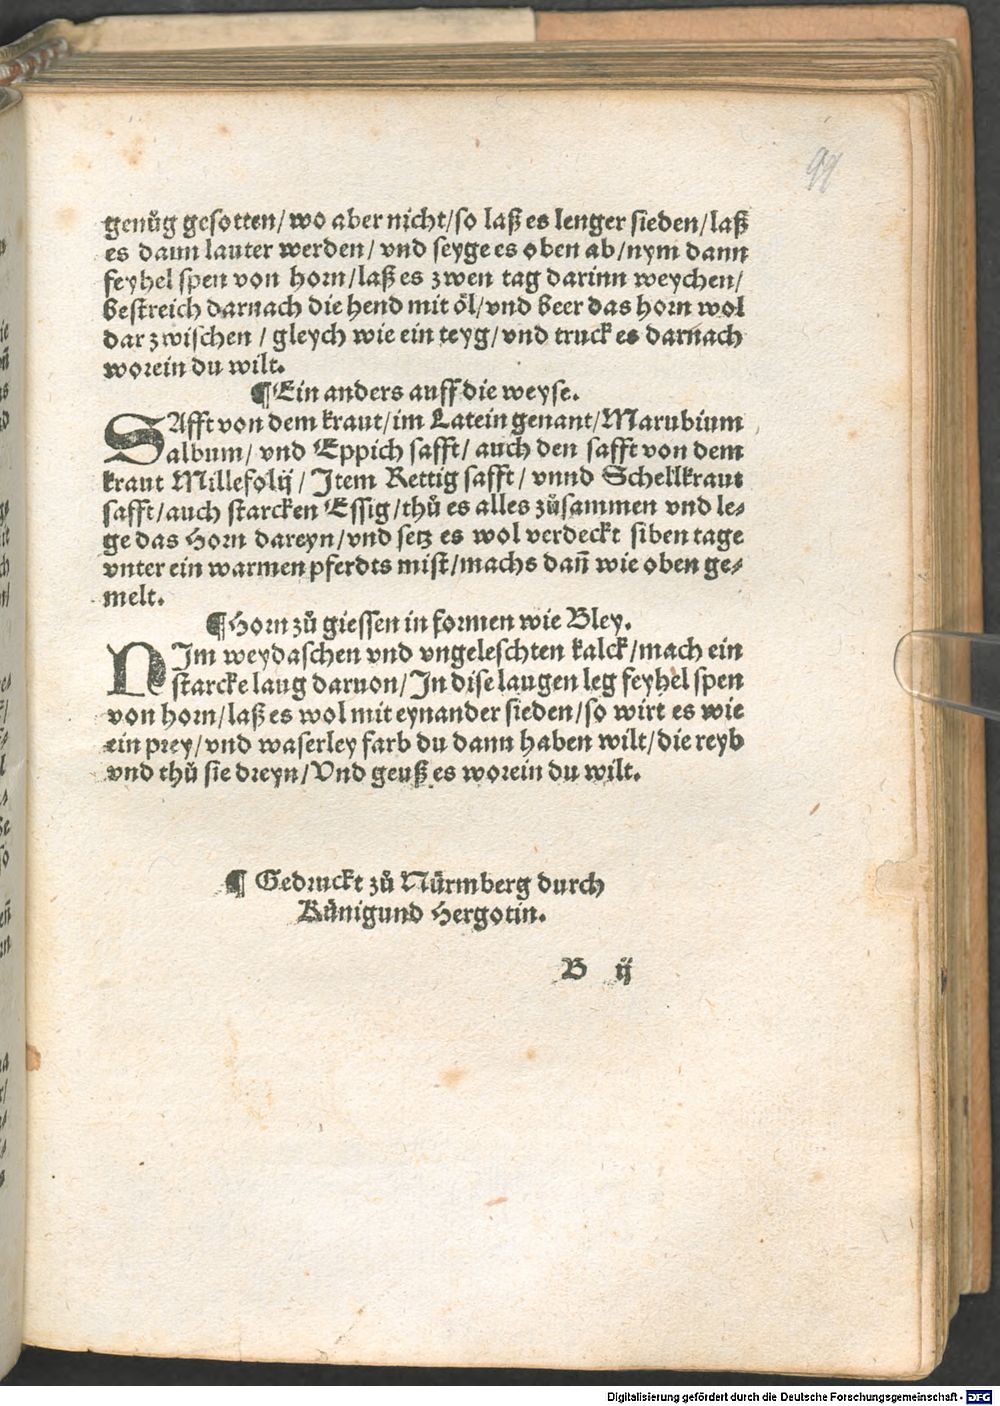 99
genůg gesotten/wo aber nicht/so laß es lenger sieden/laß
es dann lauter werden/ vnd seyge es oben ab/nym dann
feyhel spen von horn/laß es zwen tag darinn weychen/
bestreich darnach die hend mit öl/vnd beer das horn wol
dar zwischen / gleych wie ein teyg/vnd truck es darnach
worein du wilt.
¶Ein anders auff die weyse.
SAfft von dem kraut/im Latein genant/Marubium
album/ vnd Eppich safft/ auch den safft von dem
kraut Millefolij/ Item Rettig safft/ vnnd Schellkraut
safft/auch starcken Essig/thů es alles zůsammen vnd le⸗
ge das Horn dareyn/vnd setz es wol verdeckt siben tage
vnter ein warmen pferdts mist/machs dan̄ wie oben ge⸗
melt.
¶Horn zů giessen in formen wie Bley.
NIm weydaschen vnd vngeleschten kalck/mach ein
starcke laug daruon/In dise laugen leg feyhel spen
von horn/laß es wol mit eynander sieden/so wirt es wie
ein prey/vnd waserley farb du dann haben wilt/die reyb
vnd thů sie dreyn/Vnd geuß es worein du wilt.
¶ Gedruckt zů Nürmberg durch
Künigund Hergotin.
B ij
Digitalisierung gefördert durch die Deutsche Forschungsgemeinschaft - DFG